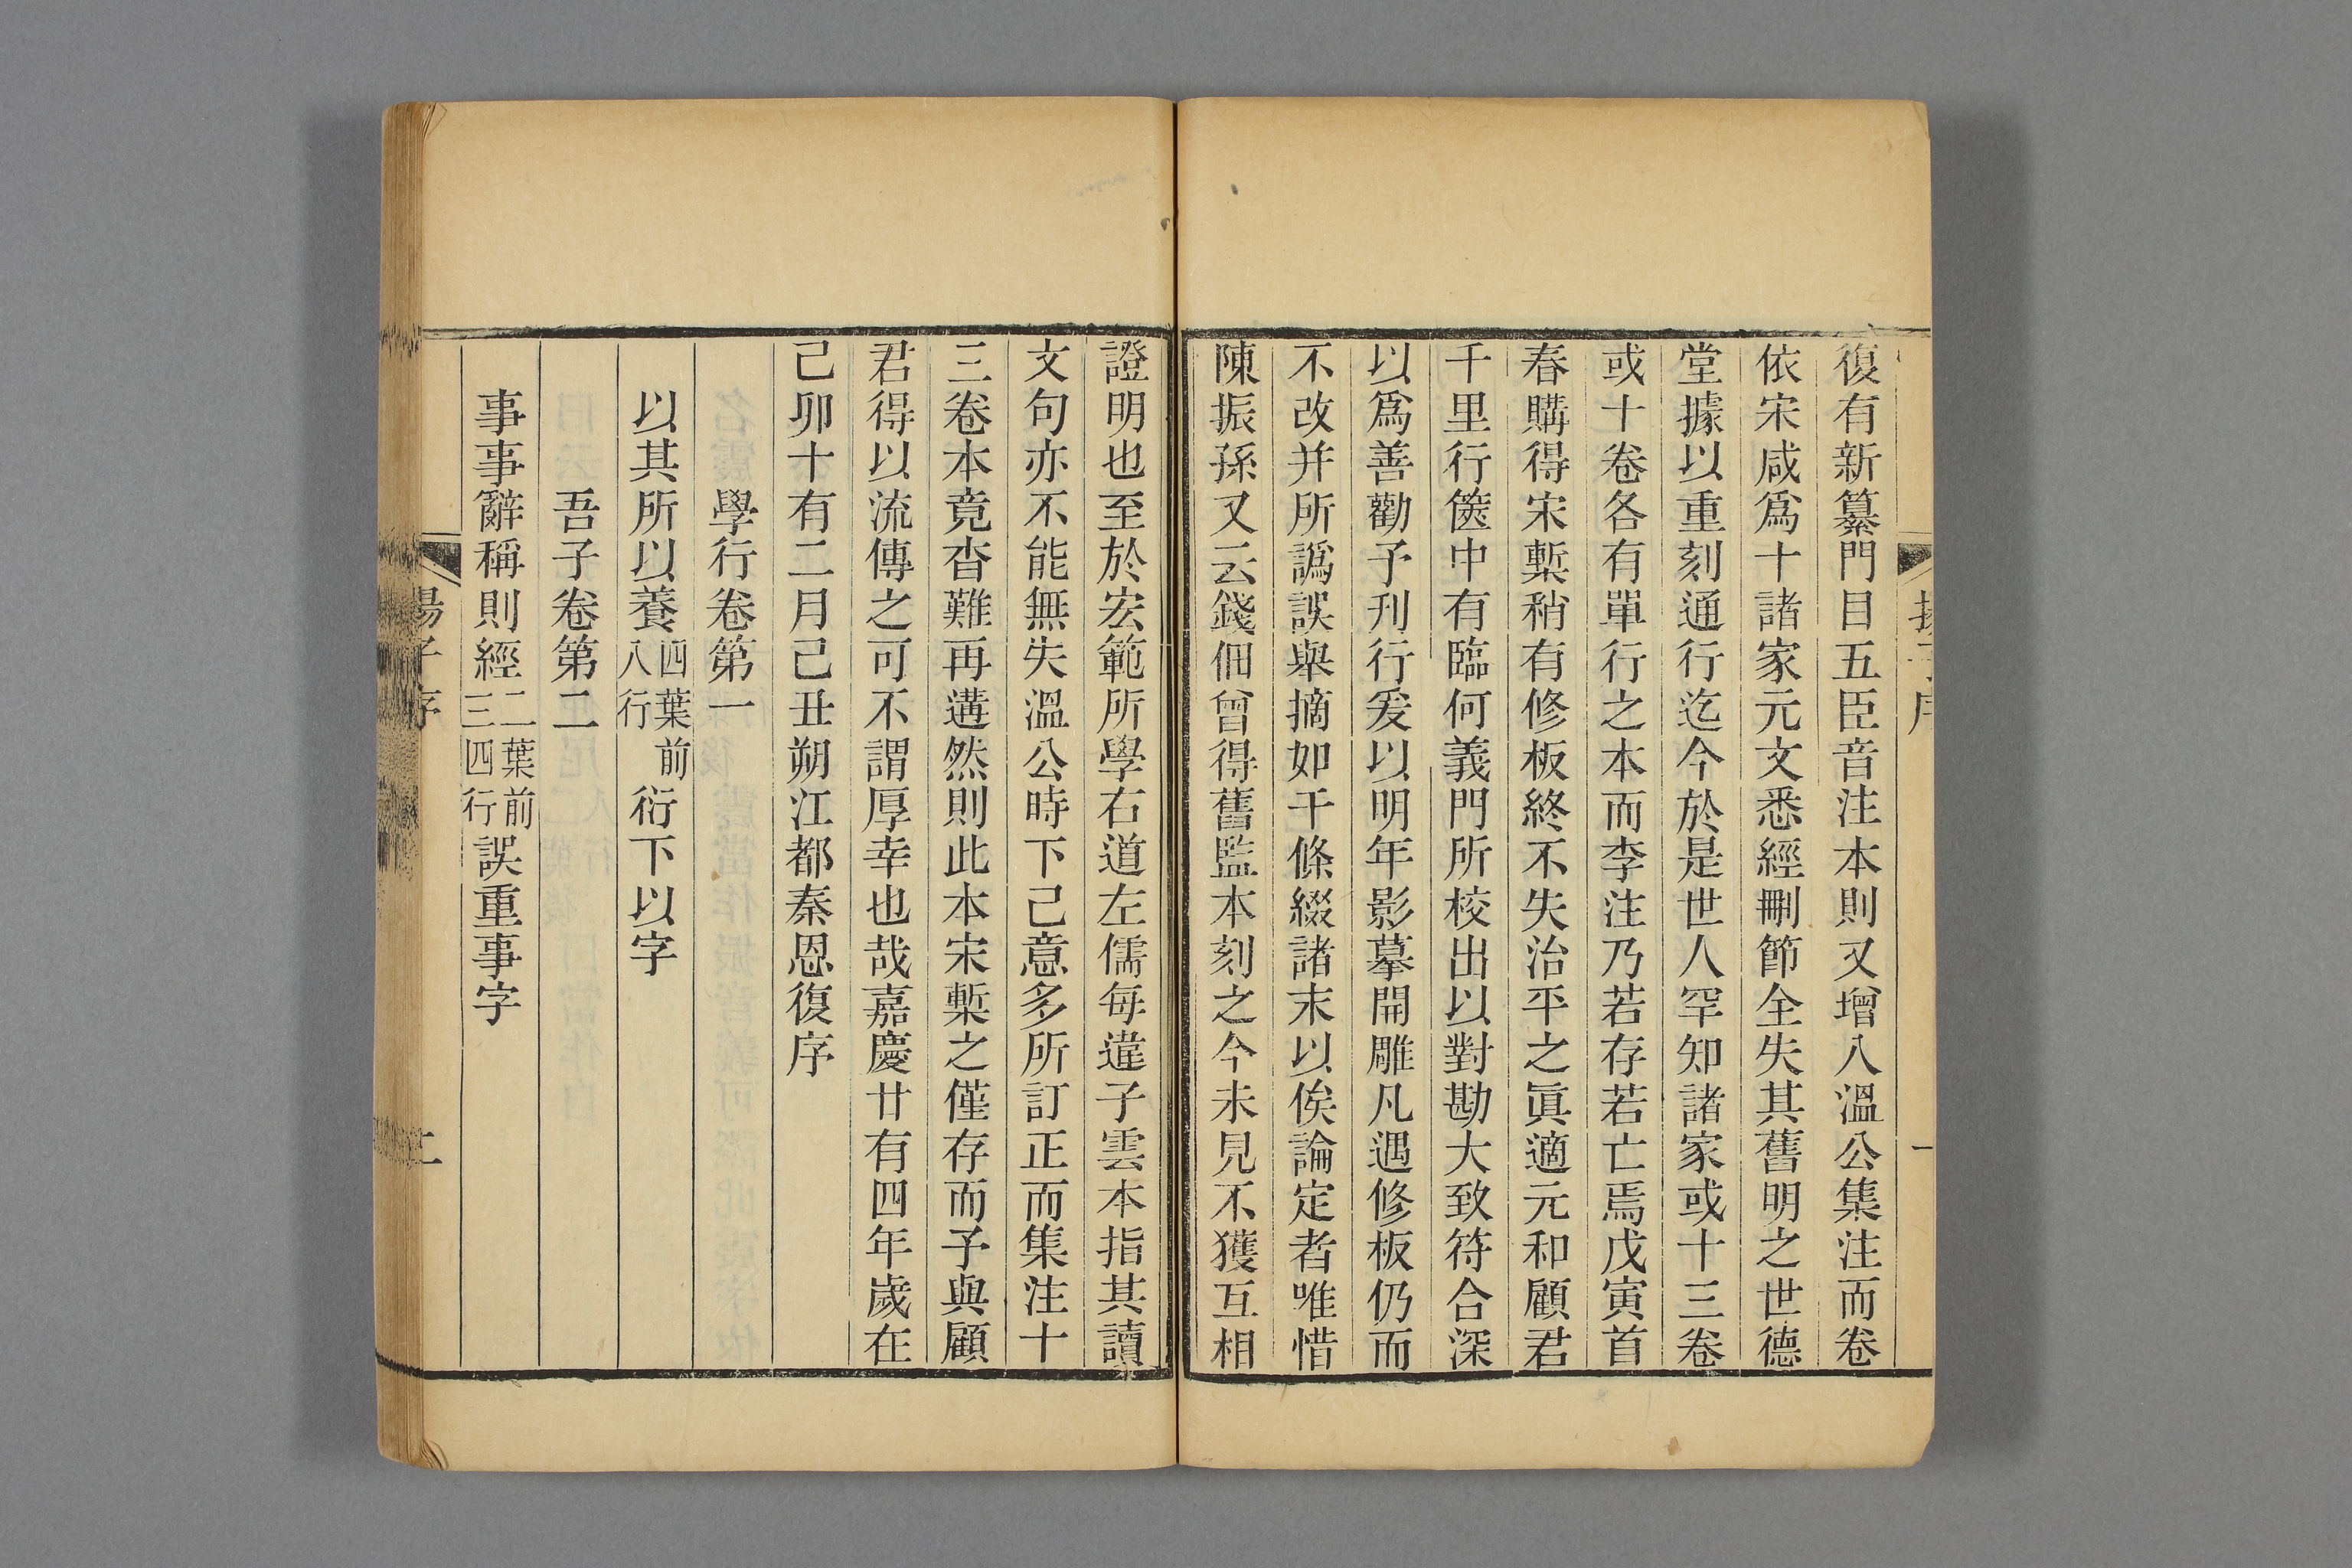 復有新纂門目五臣音注本則又增入溫公集注而卷
依宋咸爲十諸家元文悉經刪節全失其舊明之世德
堂據以重刻通行迄今於是世人罕知諸家或十三卷
或十卷各有單行之本而李注乃若存若亡焉戊寅首
春購得宋槧稍有修板終不失治平之眞適元和顧君
千里行篋中有臨何義門所校出以對勘大致符合深
以爲善勸予刋行爰以明年影摹開雕凡遇修板仍而
不改并所譌誤舉摘如干條綴諸末以俟論定者唯惜
陳振孫又云錢佃曾得舊監本刻之今未見不獲互相
證明也至於宏範所學右道左儒每違子雲本指其讀
文句亦不能無失溫公時下己意多所訂正而集注十
三卷本竟杳難再遘然則此本宋槧之僅存而予與顧
君得以流傳之可不謂厚幸也哉嘉慶廿有四年歲在
己卯十有二月己丑朔江都秦恩復序
學行卷第一
以其所以養四葉前八行衍下以字
吾子卷第二
事事辭稱則經二葉前三四行誤重事字
揚子序
二